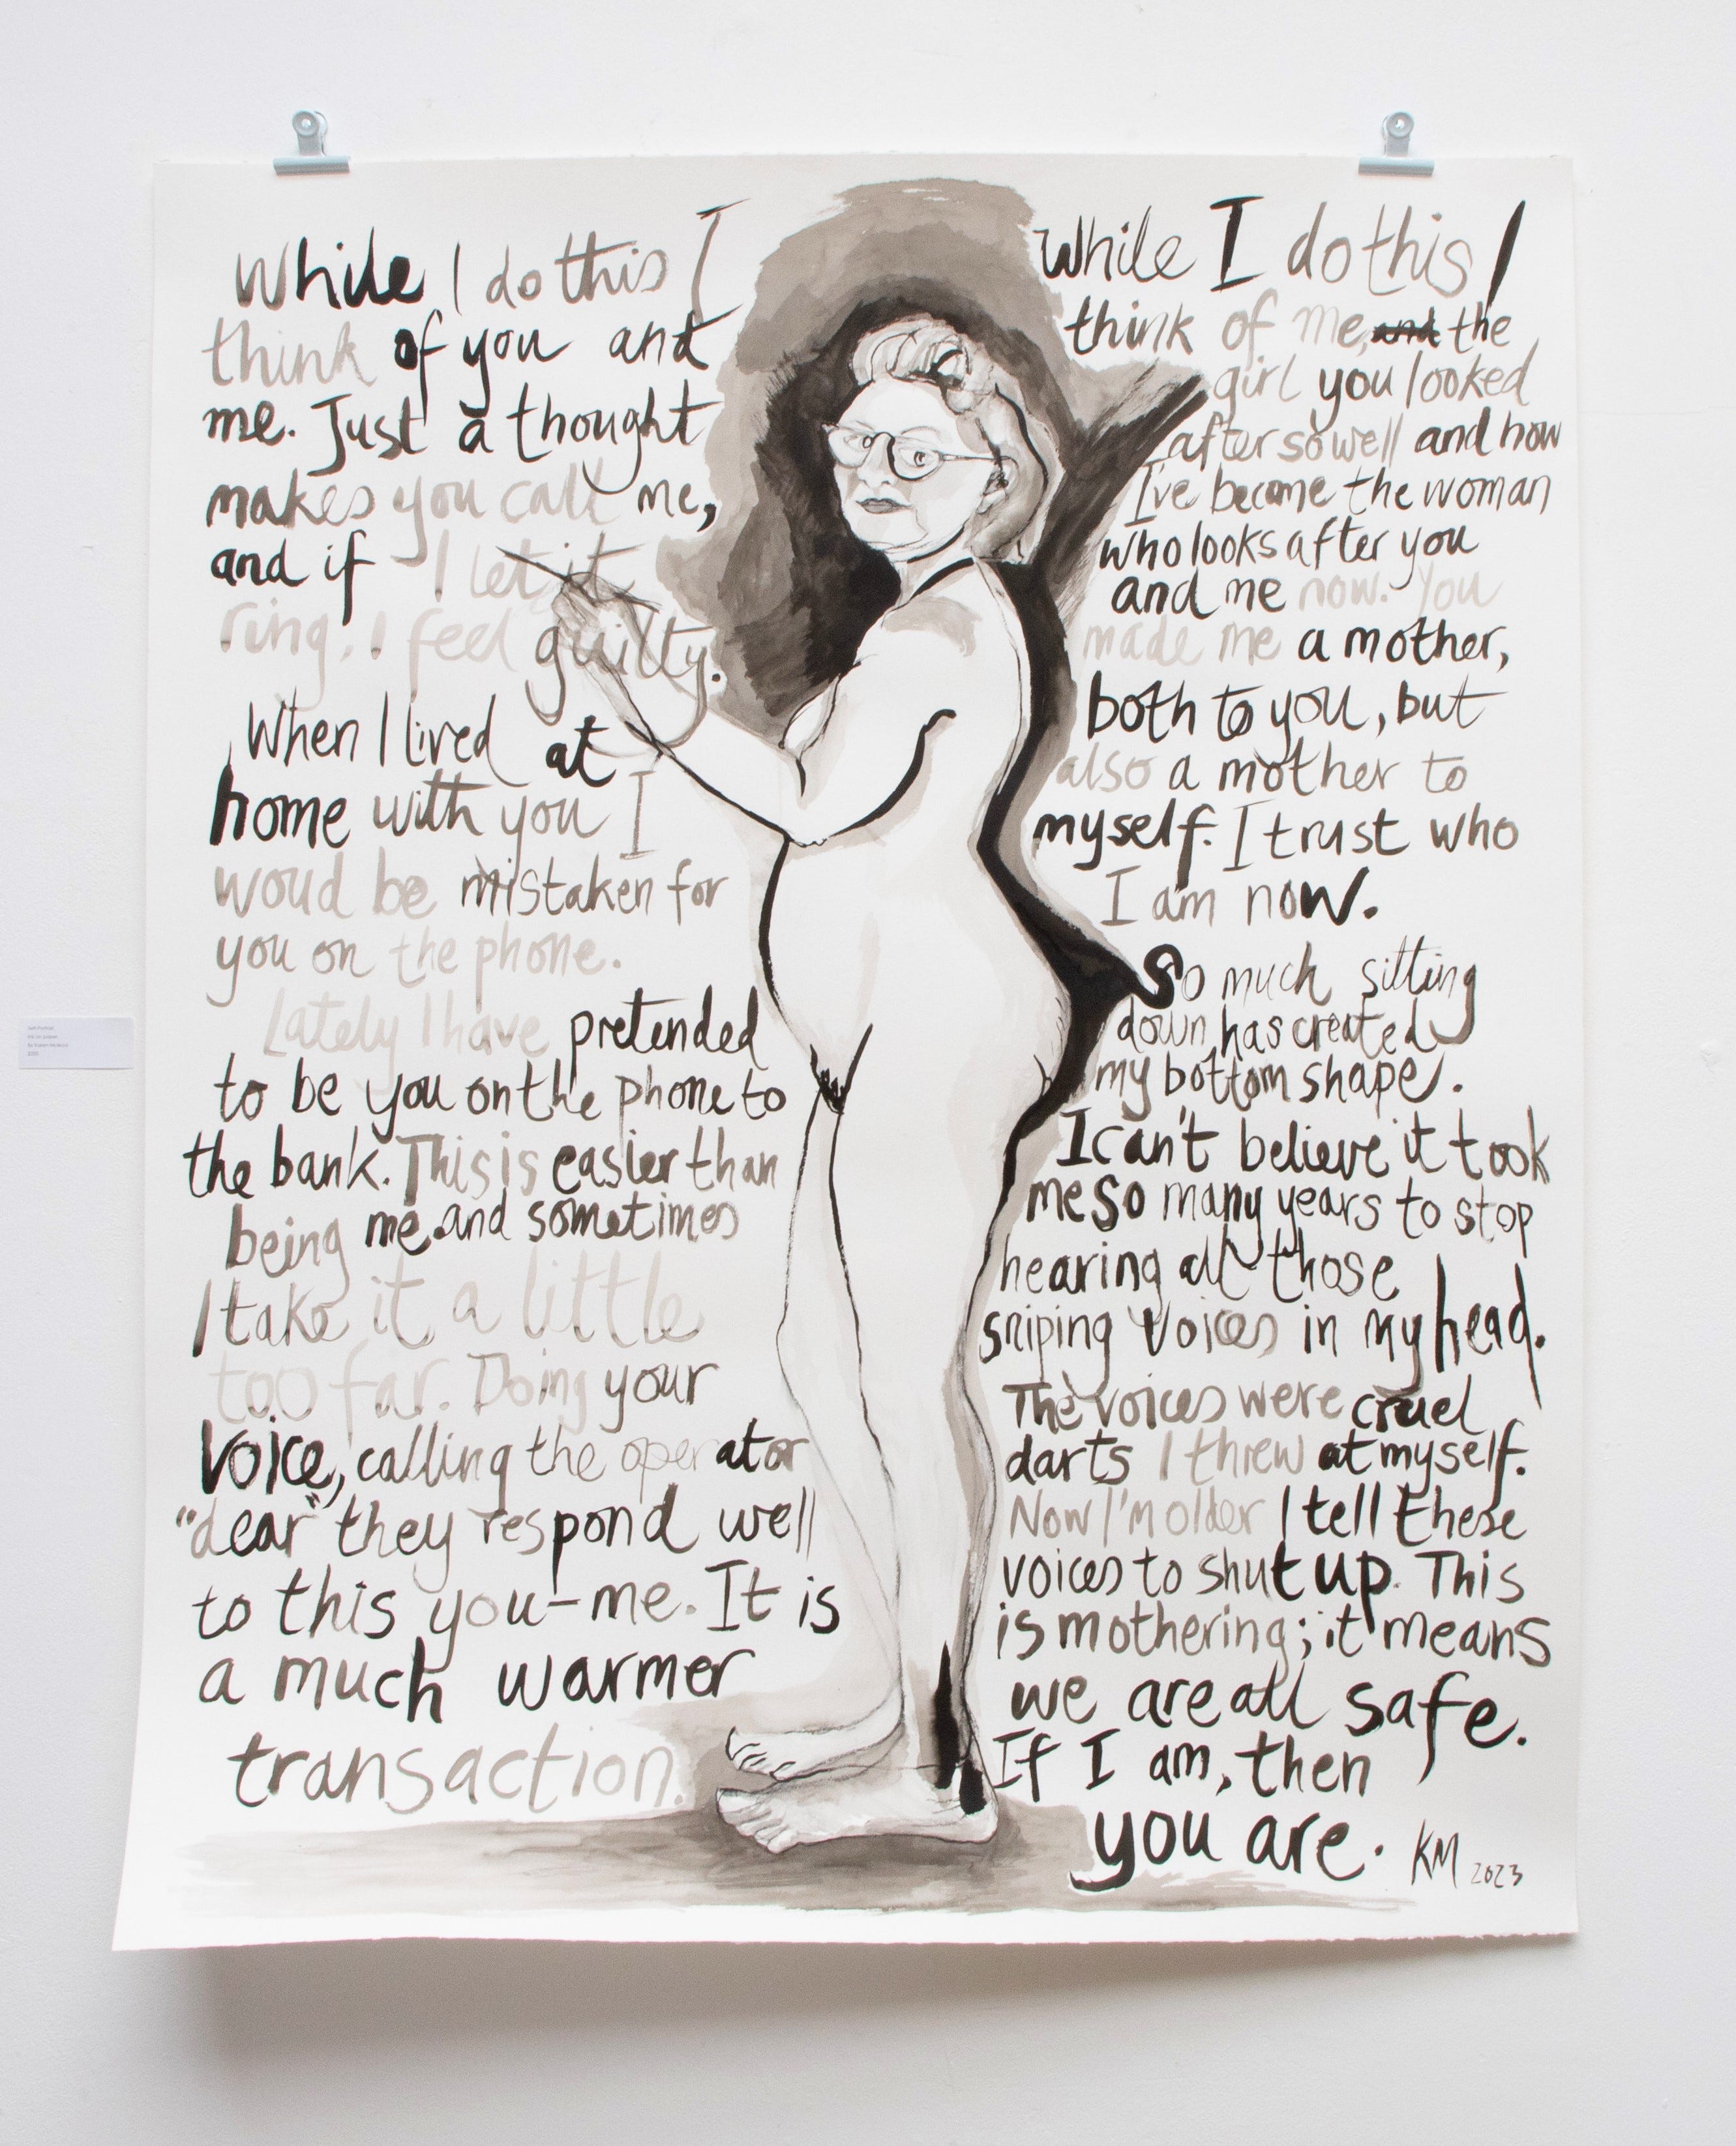 While I do this I
think of you and
me. Just a thought
makes you call me,
and if I let it
ring. I feel guilty.
When I lived at
home with you I
woud be mistaken for
you on the phone.
Lately I have pretended
to be you on the phone to
the bank. This is easier than
being me and sometimes
I take it a little
too far. Doing your
voice, calling the operator
"dear" they respond well
to this you-me. It is
a much warmer
transaction.
While I do this I
think of me, and the
girl you looked
after so well and how
I've become the woman
who looks after you
and me now. You
made me a mother,
both to you, but
also a mother to
myself. I trust who
I am now.
So much sitting
down has created
my bottom shape.
I can't believe it took
me so many years to stop
hearing all those
sniping voices in my head.
The voices were cruel
darts I threw at myself.
Now I'm older I tell these
voices to shut up. This
is mothering; it means
we are all safe.
If I am, then
you are.
KM 2023